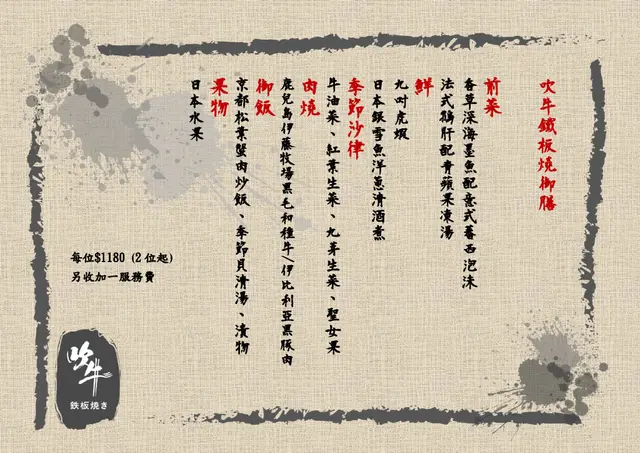 吹牛鐵板燒御膳
前菜
香草深海墨魚配意式蕃茜泡沫
法式鵝肝配青蘋果凍湯
鮮
九吋虎蝦
日本銀雪魚洋蔥清酒煮
季節沙律
牛油菜、紅葉生菜、九芽生菜、聖女果
肉燒
鹿兒島伊藤牧場黑毛和種牛/伊比利亞黑豚肉
御飯
京都松葉蟹肉炒飯、季節貝清湯、漬物
果物
日本水果
每位$1180 (2 位起)
另收加一服務費
吹牛
鉄板焼き